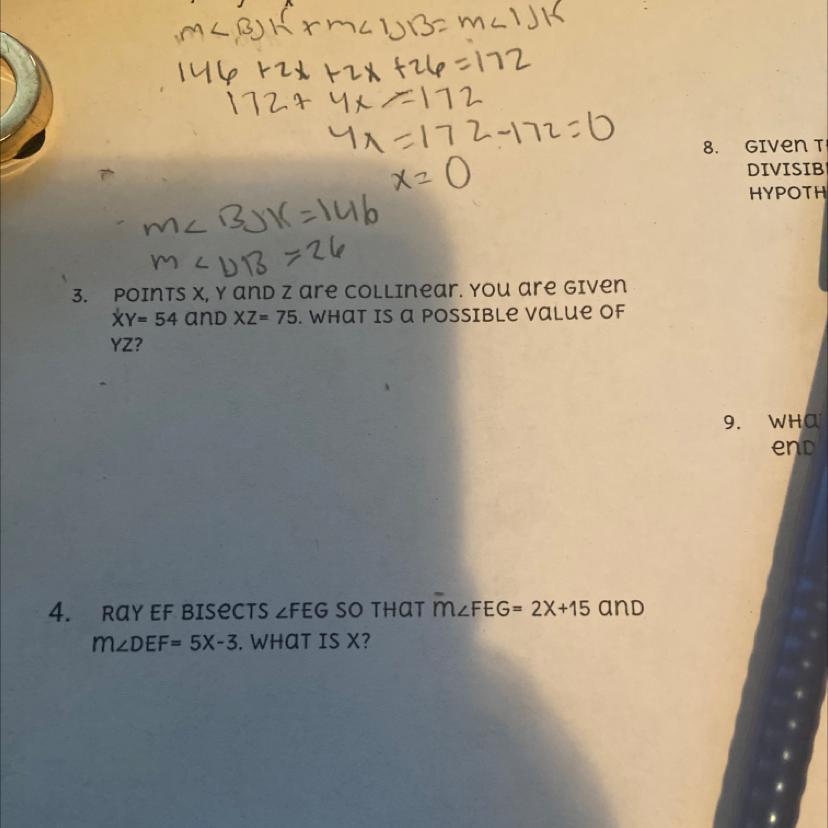 m∠BJK + m∠IJB = m∠IJK
146 + 2x + 2x + 26 = 172
172 + 4x = 172
4x = 172 - 172 = 0
x = 0
m∠BJK = 146
m∠IJB = 26
3. POINTS X, Y AND Z ARE COLLINEAR. YOU ARE GIVEN
XY= 54 AND XZ= 75. WHAT IS A POSSIBLE VALUE OF
YZ?
4. RAY EF BISECTS ∠FEG SO THAT m∠FEG= 2X+15 AND
m∠DEF= 5X-3. WHAT IS X?
8. GIVEN
DIVISIB
HYPOTH
9. WHA
END